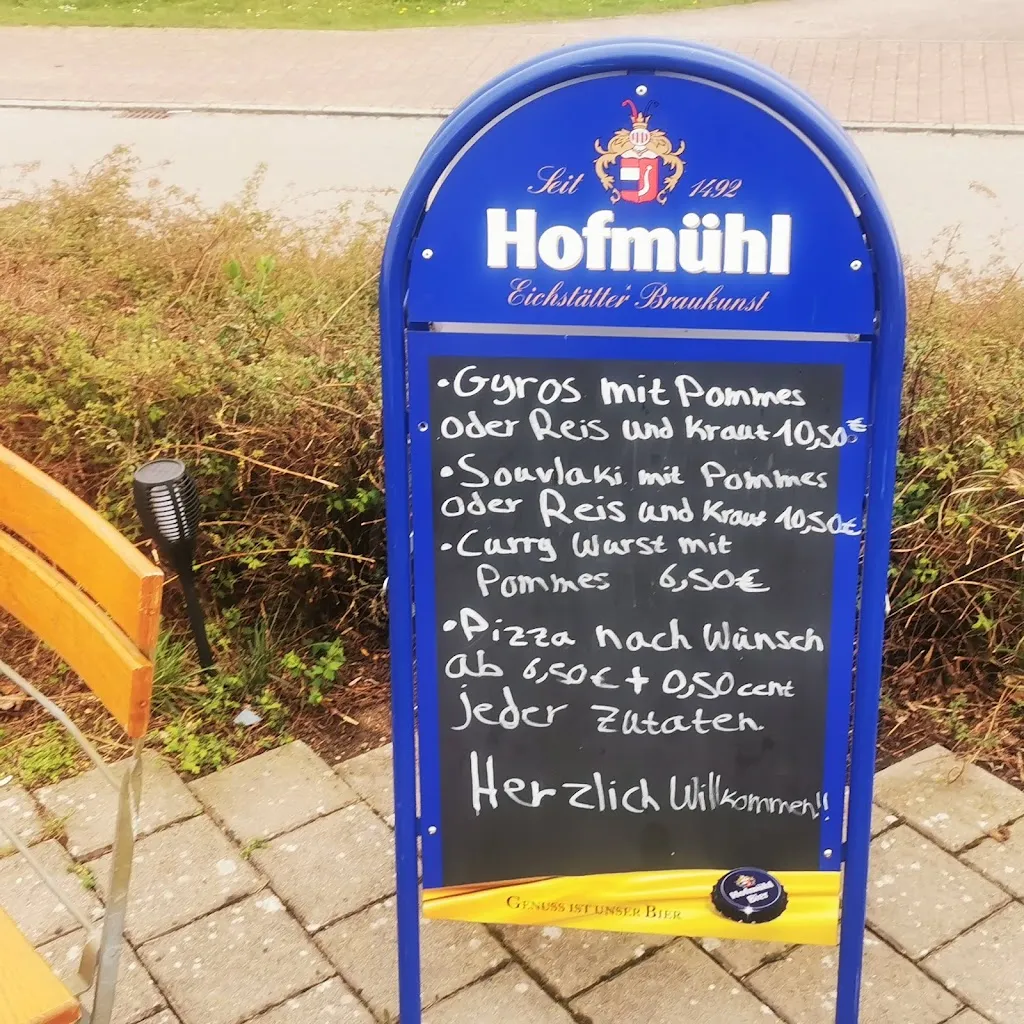 Seit 1492
Hofmühl
Eichstätter Braukunst
• Gyros mit Pommes
oder Reis und Kraut 10,50€
• Souvlaki mit Pommes
oder Reis und Kraut 10,50€
• Curry Wurst mit
Pommes 6,50€
• Pizza nach Wünsch
ab 6,50€ + 0,50 cent
jeder Zutaten
Herzlich Willkommen!!
Hofmühl
Bier
GENUSS IST UNSER BIER